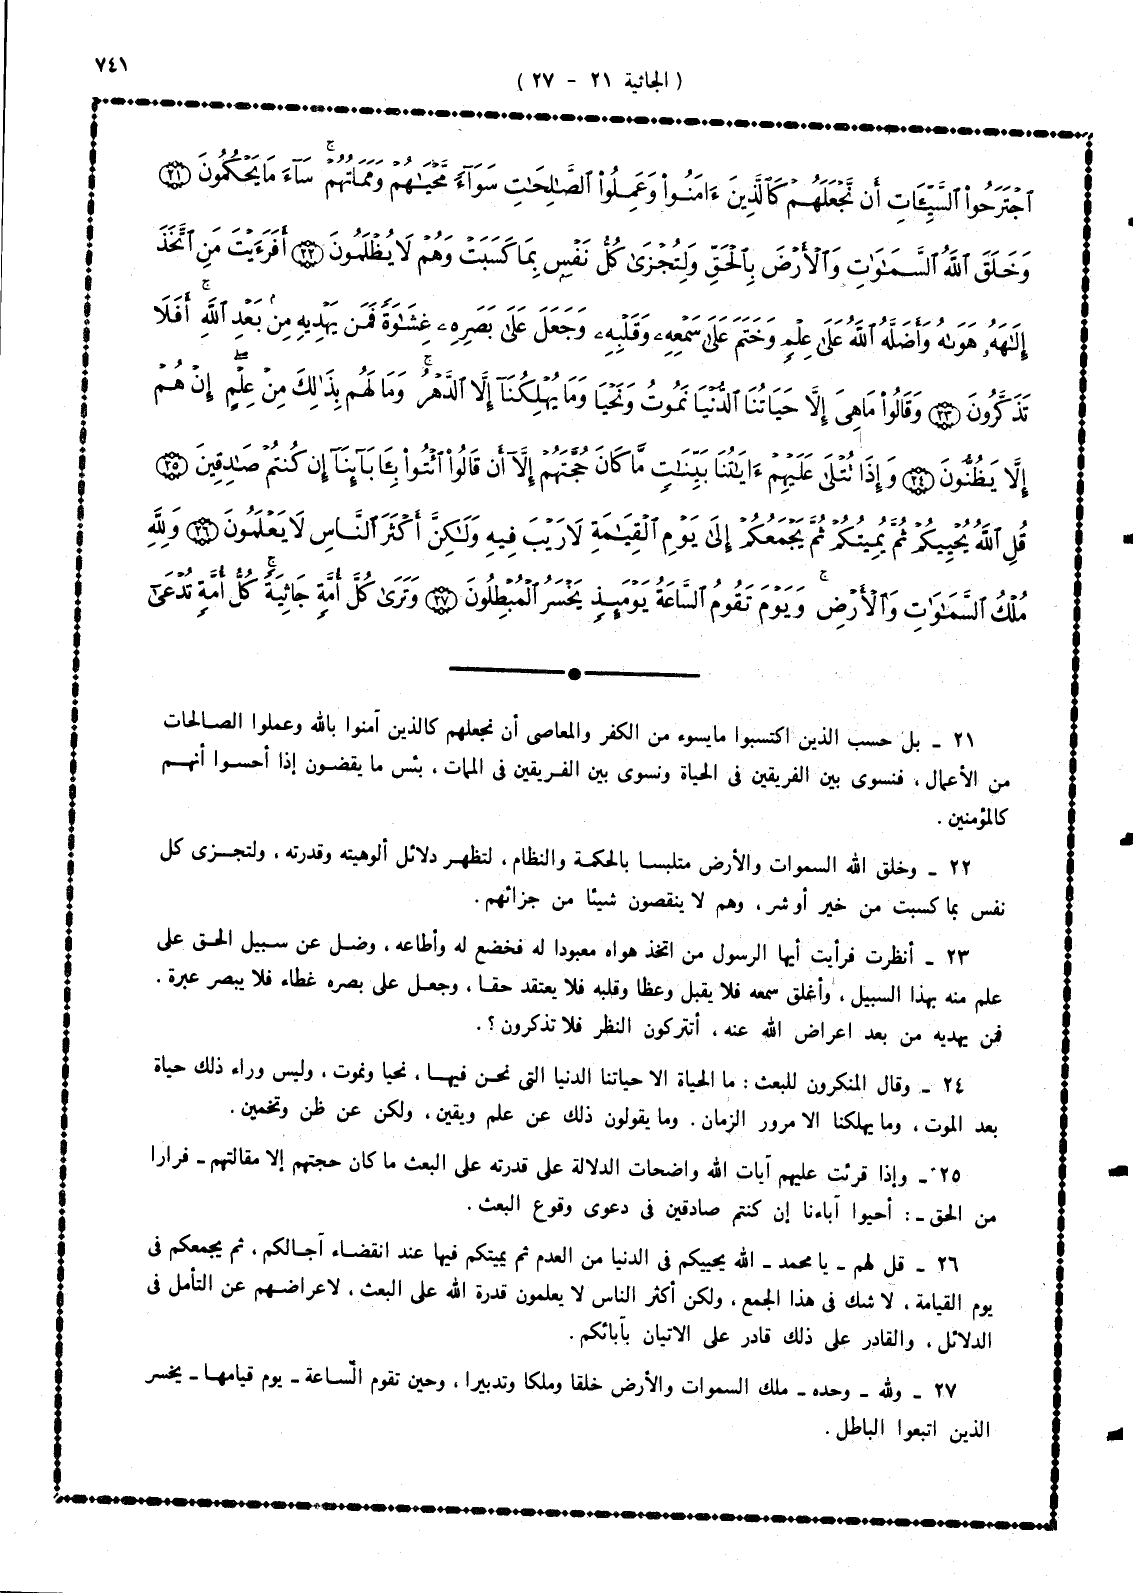 ٧٤١
( الجاثية ٢١ - ٢٧ )
ٱجْتَرَحُواْ ٱلسَّيِّـَٔاتِ أَن نَّجْعَلَهُمْ كَٱلَّذِينَ ءَامَنُواْ وَعَمِلُواْ ٱلصَّـٰلِحَـٰتِ سَوَآءً مَّحْيَاهُمْ وَمَمَاتُهُمْ ۚ سَآءَ مَا يَحْكُمُونَ ﴿٢١﴾
وَخَلَقَ ٱللَّهُ ٱلسَّمَـٰوَٰتِ وَٱلْأَرْضَ بِٱلْحَقِّ وَلِتُجْزَىٰ كُلُّ نَفْسٍۭ بِمَا كَسَبَتْ وَهُمْ لَا يُظْلَمُونَ ﴿٢٢﴾ أَفَرَءَيْتَ مَنِ ٱتَّخَذَ
إِلَـٰهَهُۥ هَوَىٰهُ وَأَضَلَّهُ ٱللَّهُ عَلَىٰ عِلْمٍ وَخَتَمَ عَلَىٰ سَمْعِهِۦ وَقَلْبِهِۦ وَجَعَلَ عَلَىٰ بَصَرِهِۦ غِشَـٰوَةً فَمَن يَهْدِيهِ مِنۢ بَعْدِ ٱللَّهِ ۚ أَفَلَا
تَذَكَّرُونَ ﴿٢٣﴾ وَقَالُواْ مَا هِىَ إِلَّا حَيَاتُنَا ٱلدُّنْيَا نَمُوتُ وَنَحْيَا وَمَا يُهْلِكُنَآ إِلَّا ٱلدَّهْرُ ۚ وَمَا لَهُم بِذَٰلِكَ مِنْ عِلْمٍ ۖ إِنْ هُمْ
إِلَّا يَظُنُّونَ ﴿٢٤﴾ وَإِذَا تُتْلَىٰ عَلَيْهِمْ ءَايَـٰتُنَا بَيِّنَـٰتٍ مَّا كَانَ حُجَّتَهُمْ إِلَّآ أَن قَالُواْ ٱئْتُواْ بِـَٔابَآئِنَآ إِن كُنتُمْ صَـٰدِقِينَ ﴿٢٥﴾
قُلِ ٱللَّهُ يُحْيِيكُمْ ثُمَّ يُمِيتُكُمْ ثُمَّ يَجْمَعُكُمْ إِلَىٰ يَوْمِ ٱلْقِيَـٰمَةِ لَا رَيْبَ فِيهِ وَلَـٰكِنَّ أَكْثَرَ ٱلنَّاسِ لَا يَعْلَمُونَ ﴿٢٦﴾ وَلِلَّهِ
مُلْكُ ٱلسَّمَـٰوَٰتِ وَٱلْأَرْضِ ۚ وَيَوْمَ تَقُومُ ٱلسَّاعَةُ يَوْمَئِذٍ يَخْسَرُ ٱلْمُبْطِلُونَ ﴿٢٧﴾ وَتَرَىٰ كُلَّ أُمَّةٍ جَاثِيَةً ۚ كُلُّ أُمَّةٍ تُدْعَىٰٓ
٢١ - بل حسب الذين اكتسبوا مايسوء من الكفر والمعاصى أن نجعلهم كالذين آمنوا بالله وعملوا الصالحات
من الأعمال ، فنسوى بين الفريقين فى الحياة ونسوى بين الفريقين فى الممات ، بئس ما يقضون إذا أحسوا أنهم
كالمؤمنين .
٢٢ - وخلق الله السموات والأرض متلبسا بالحكمة والنظام ، لتظهر دلائل ألوهيته وقدرته ، ولتجزى كل
نفس بما كسبت من خير أو شر ، وهم لا ينقصون شيئا من جزائهم .
٢٣ - أنظرت فرأيت أيها الرسول من اتخذ هواه معبودا له فخضع له وأطاعه ، وضل عن سبيل الحق على
علم منه بهذا السبيل ، وأغلق سمعه فلا يقبل وعظا وقلبه فلا يعتقد حقا ، وجعل على بصره غطاء فلا يبصر عبرة .
فمن يهديه من بعد اعراض الله عنه ، أتتركون النظر فلا تذكرون ؟ .
٢٤ - وقال المنكرون للبعث : ما الحياة الا حياتنا الدنيا التى نحن فيها ، نحيا ونموت ، وليس وراء ذلك حياة
بعد الموت ، وما يهلكنا الا مرور الزمان . وما يقولون ذلك عن علم ويقين ، ولكن عن ظن وتخمين .
٢٥ - وإذا قرئت عليهم آيات الله واضحات الدلالة على قدرته على البعث ما كان حجتهم إلا مقالتهم - فرارا
من الحق - : أحيوا آباءنا إن كنتم صادقين فى دعوى وقوع البعث .
٢٦ - قل لهم - يا محمد - الله يحييكم فى الدنيا من العدم ثم يميتكم فيها عند انقضاء آجالكم ، ثم يجمعكم فى
يوم القيامة ، لا شك فى هذا الجمع ، ولكن أكثر الناس لا يعلمون قدرة الله على البعث ، لاعراضهم عن التأمل فى
الدلائل ، والقادر على ذلك قادر على الاتيان بآبائكم .
٢٧ - ولله - وحده - ملك السموات والأرض خلقا وملكا وتدبيرا ، وحين تقوم الساعة - يوم قيامها - يخسر
الذين اتبعوا الباطل .